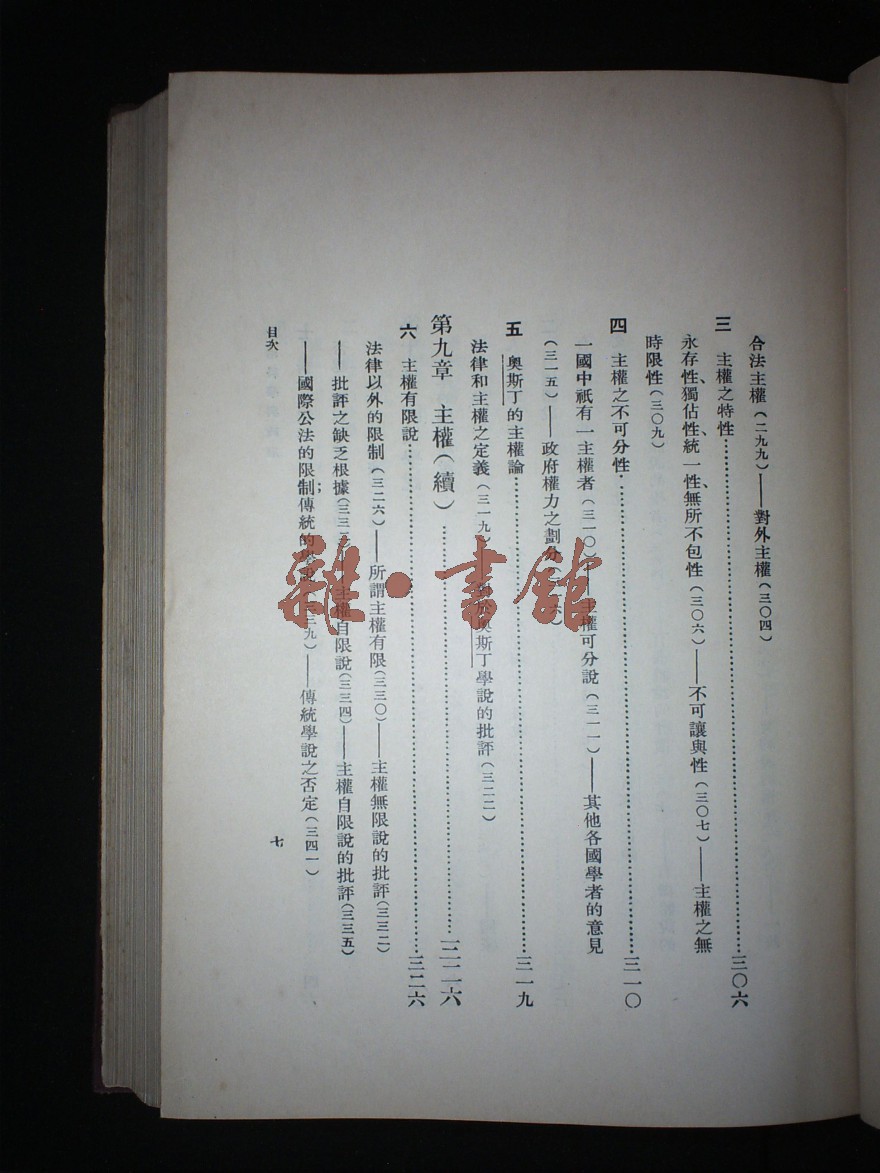 合法主權(二九九)——對外主權(三〇四)
三 主權之特性……三〇六
永存性、獨佔性、統一性、無所不包性(三〇六)——不可讓與性(三〇七)——主權之無
時限性(三〇九)
四 主權之不可分性……三一〇
一國中祇有一主權者(三一〇)——主權可分說(三一一)——其他各國學者的意見
(三一五)——政府權力之劃分
五 奧斯丁的主權論……三一九
法律和主權之定義(三一九)——對於奧斯丁學說的批評(三二二)
第九章 主權(續)……三二六
六 主權有限說……三二六
法律以外的限制(三二六)——所謂主權有限(三三〇)——主權無限說的批評(三三二)
——批評之缺乏根據——主權自限說(三三四)——主權自限說的批評(三三五)
——國際公法的限制;傳統的學說(三三九)——傳統學說之否定(三四一)
目次
七
雜·書館